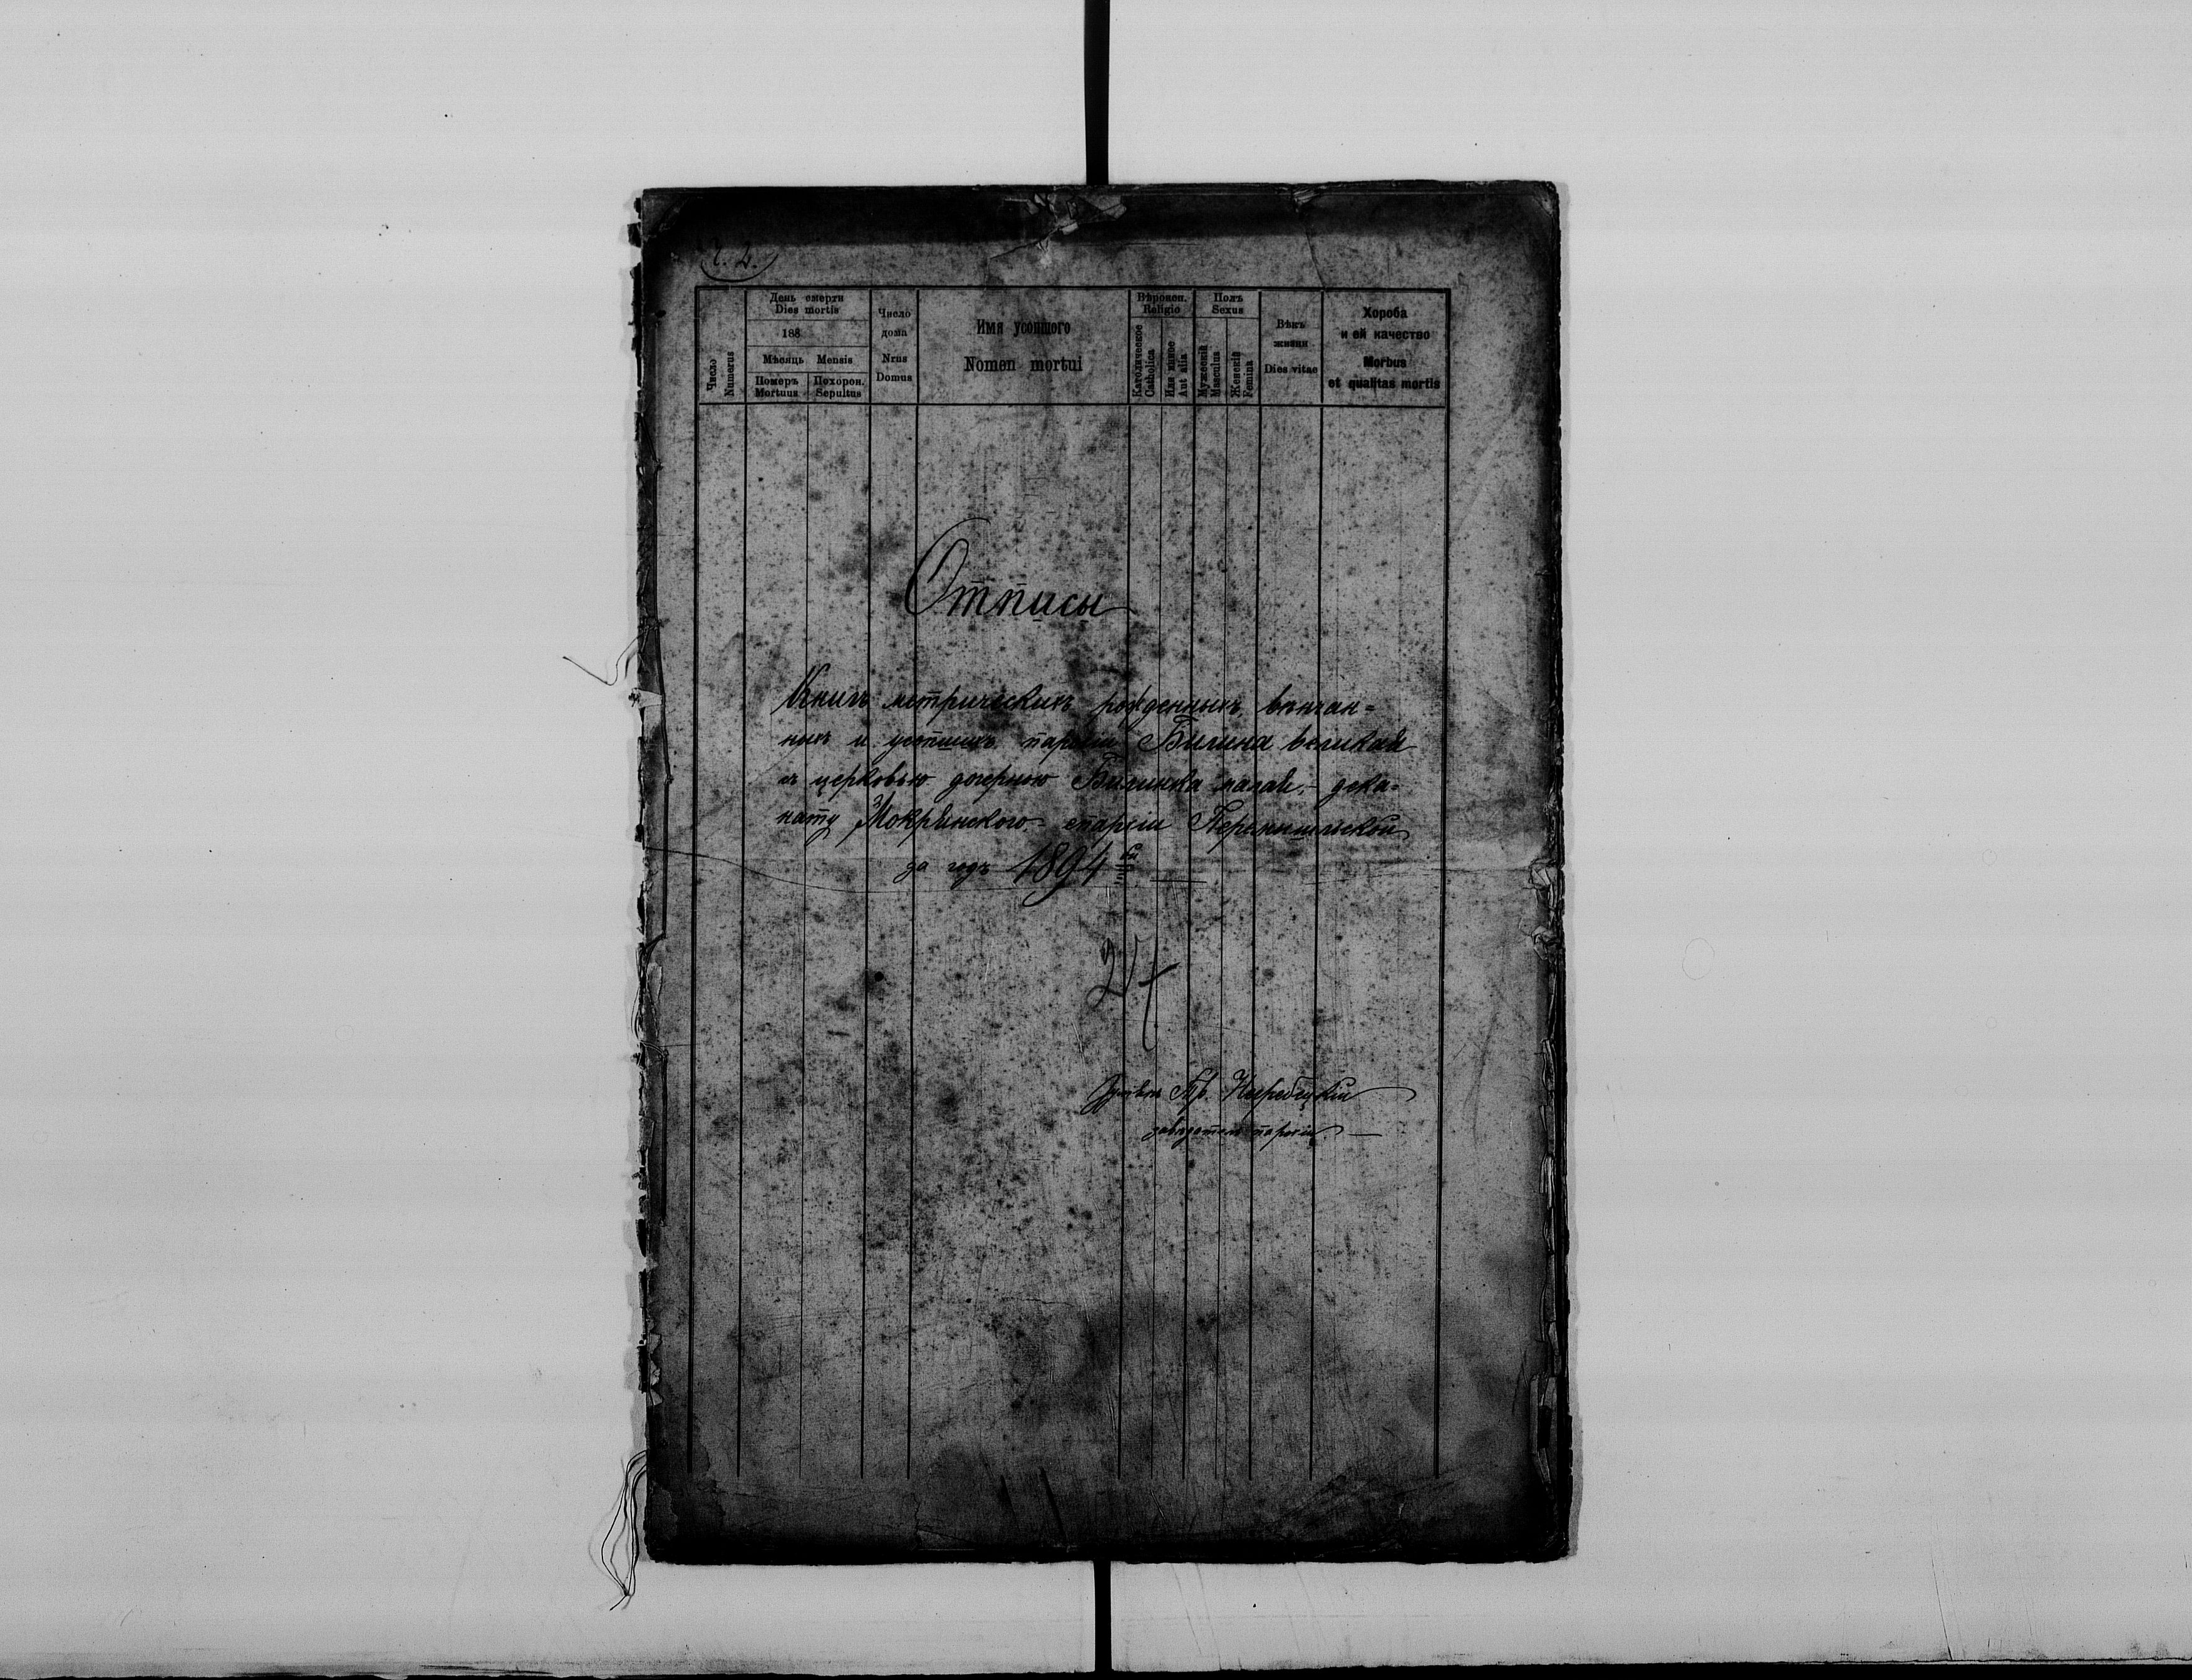 ч. 2.
День смерти
Dies mortis
188
Мѣсяць Mensis
Померъ Похорон.
Mortuus Sepultus
Число
Numerus
Число
дома
Nrus
Domus
Имя усопшого
Nomen mortui
Вѣроисп.
Religio
Католическое
Catholica
Или инное
Aut alia
Полъ
Sexus
Мужескій
Masculus
Женскій
Femina
Вѣкъ
жизни
Dies vitae
Хороба
и ей качество
Morbus
et qualitas mortis
Отписы
Книгъ метрическихъ рожденныхъ, вѣнчан=
ныхъ и усопшихъ парохіи Билина великая
съ церковью дочерною Билинка малая, - дека=
нату Мокрянского - епархіи Перемышльской
за годъ 1894
завѣдатель парохіи